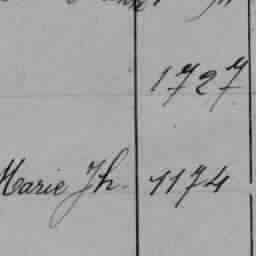 1727
Marie Jh. 1174